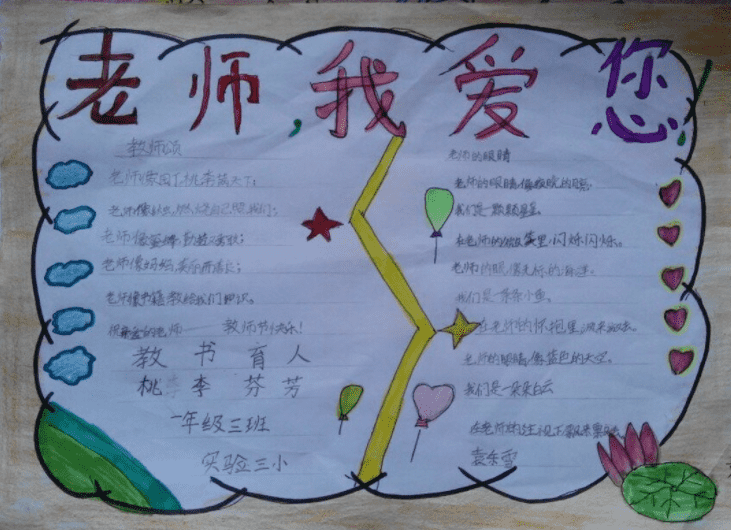 老师,我爱您!
教师颂
老师像园丁,桃李满天下;
老师像 自己照 我们;
老师像蜜蜂,勤
老师像
老师像书籍,教给我们知识。
的老师 教师节快乐!
教书育人
桃李芬芳
一年级三班
实验三小
老师的眼睛
老师的眼睛像 的
我们是一颗颗星星
在老师的 里闪烁闪烁。
老师的眼 的海洋。
我们是一条条小鱼。
在老师的怀抱里游来游去。
老师的眼睛像蓝色的天空。
我们是一朵朵白云
在老师的注视下飘来飘去。
袁乐雪